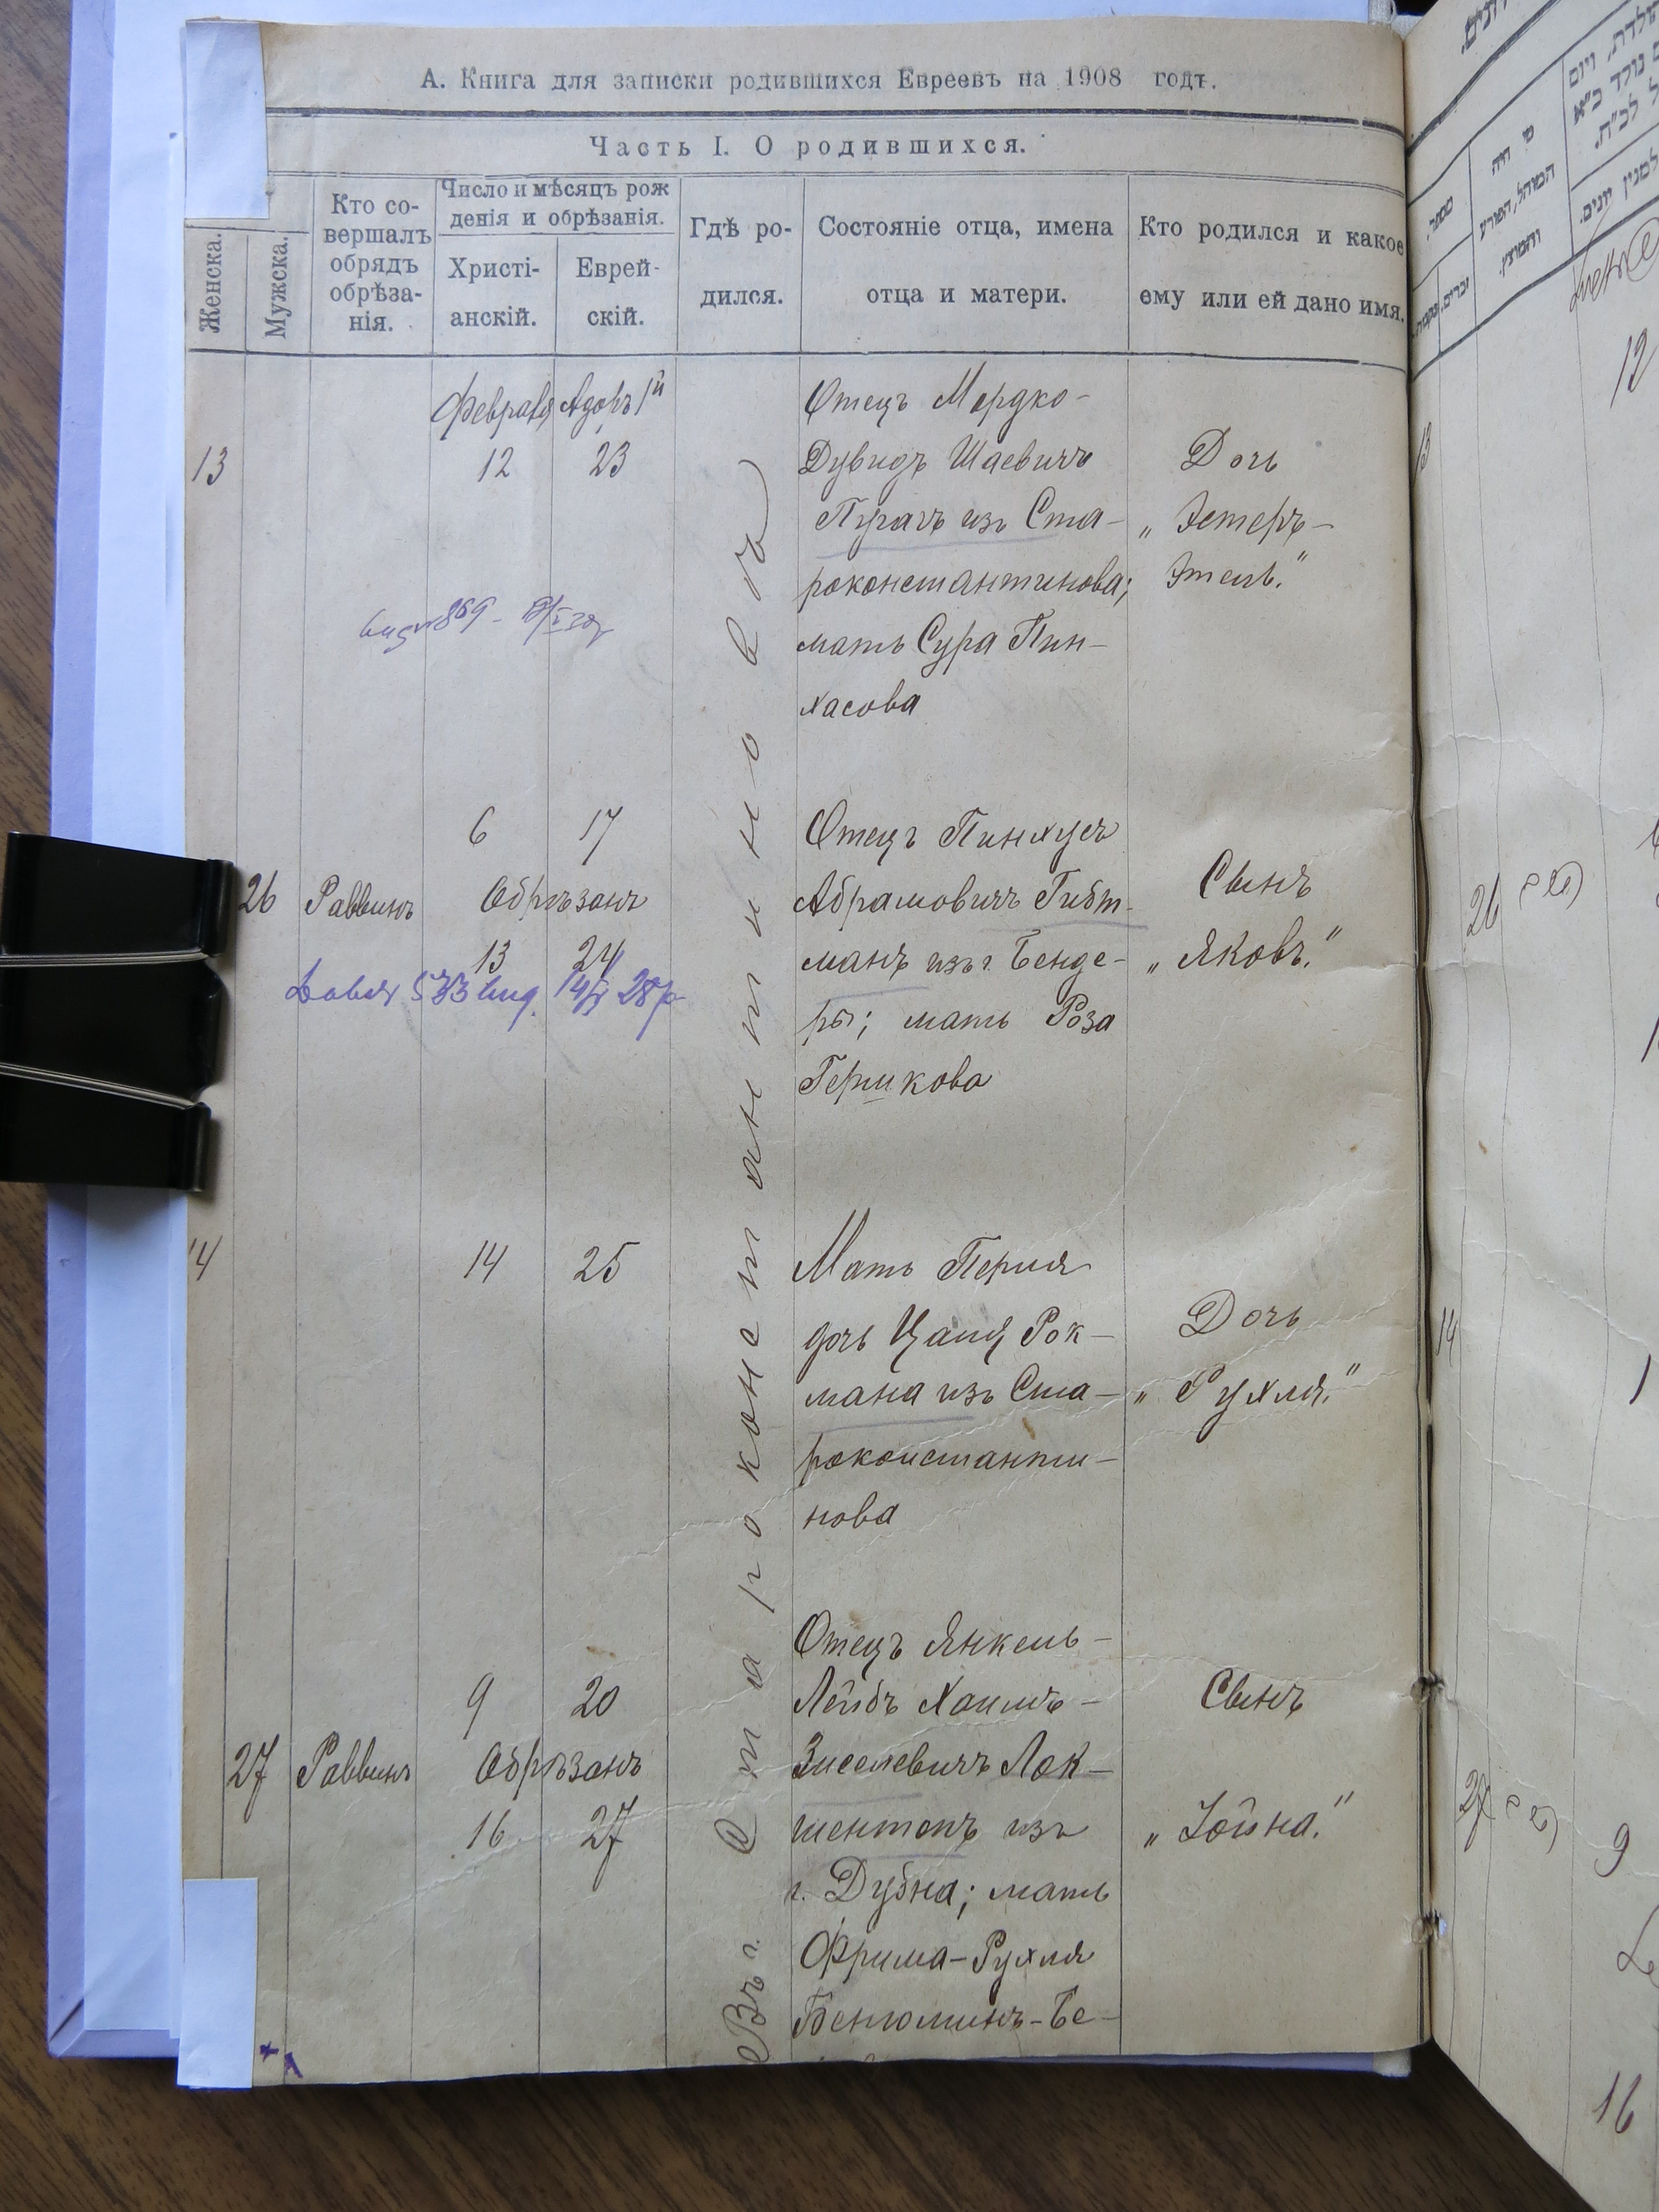 А. Книга для записки родившихся Евреевъ на 1908 годъ.
Часть I. О родившихся.
Женска.
Мужска.
Кто со-
вершалъ
обрядъ
обрѣза-
нія.
Число и мѣсяцъ рож
денія и обрѣзанія.
Христі-
анскій.
Еврей-
скій.
Гдѣ ро-
дился.
Состояніе отца, имена
отца и матери.
Кто родился и какое
ему или ей дано имя.
Въ г. Староконстантиновѣ
Февраля Адоръ 1й
13 12 23
Отецъ Мордко-
Дувидъ Шаевичъ
Пугачъ изъ Ста-
роконстантинова;
мать Сура Пин-
хасова
Дочь
„Эстеръ-
Этель."
6 17
26 Раввинъ Обрѣзанъ
13 24
533 выд. 28
Отецъ Пинхусъ
Абрамовичъ Гибт-
манъ изъ г. Бенде-
ры; мать Роза
Гершкова
Сынъ
„Яковъ."
14 14 25
Мать Перля
дочь Рок-
мана изъ Ста-
роконстанти-
нова
Дочь
„Рухля."
9 20
27 Раввинъ Обрѣзанъ
16 27
Отецъ Янкель-
Лейбъ Хаимъ-
Зиселевичъ Лок-
шентопъ изъ
г. Дубна; мать
Фрима-Рухля
Бенюминъ-Бе-
Сынъ
„Іойна."
מספר
זכרים
נקבות
מי היה
המוהל, הפורע
והמוצץ.
12
13
26
14
27
9
16